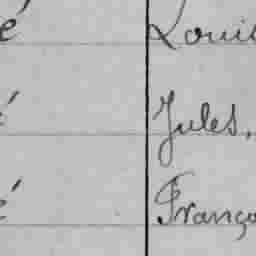 é Louis
é Jules,
é Franço